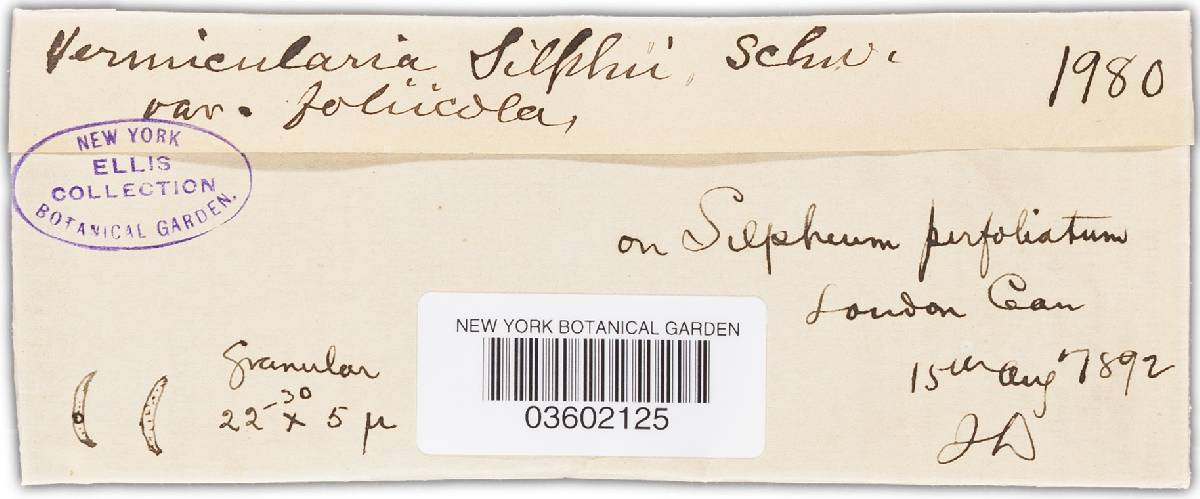 Vermicularia Silphii, Schw.
1980
var. foliicola,
NEW YORK
ELLIS
COLLECTION
BOTANICAL GARDEN.
on Silphium perfoliatum
London Can
15th Aug 1892
JD
Granular
22-30 x 5 µ
NEW YORK BOTANICAL GARDEN
03602125